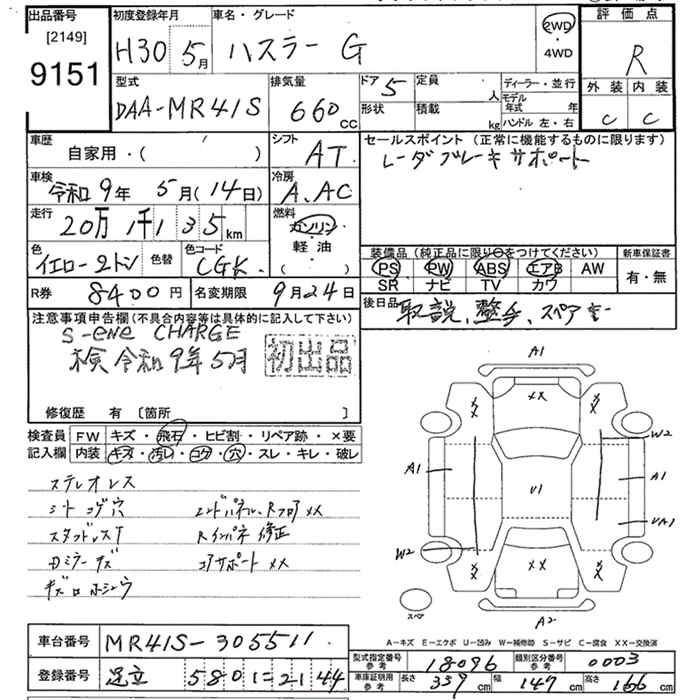 出品番号
[2149]
9151
初度登録年月
H30 5月
車名・グレード
ハスラー G
2WD
・
4WD
評価点
R
型式
DAA-MR41S
排気量
660 cc
ドア 5
定員 人
形状
積載 kg
ディーラー・並行
モデル年式 年
ハンドル 左・右
外装 内装
C C
車歴
自家用・( )
シフト
AT
セールスポイント(正常に機能するものに限ります)
レーダブレーキサポート
車検
令和9年 5月(14日)
冷房
A.AC
走行
20万1千135km
燃料
ガソリン
・
軽油
( )
色
イエロー2トン
色替
色コード
CGK
装備品(純正品に限り○をつけてください)
PS PW ABS エアB AW
SR ナビ TV カワ
新車保証書
有・無
R券 8400円
名変期限 9月24日
後日品
取説、整手、スペアキー
注意事項申告欄(不具合内容等は具体的に記入して下さい)
S-ene CHARGE
検 令和9年5月
初出品
修復歴 有 [箇所 ]
検査員記入欄
FW キズ・飛石・ヒビ割・リペア跡・×要
内装 キズ・汚レ・コゲ・穴・スレ・キレ・破レ
ステレオレス
シートコゲ穴
エンドパネル、Rフロア XX
スタッドレスT
Rインパネ 修正
コアサポート XX
A1
XX
XX
XX
W2
A1
U1
A1
UA1
W2
XX
XX
XX
スペア
A2
A-キズ E-エクボ U-凹み W-補修跡 S-サビ C-腐食 XX-交換済
車台番号 MR41S-305511
登録番号 足立 580 に 21 44
型式指定番号 参考 18096
類別区分番号 参考 0003
車庫証明用 参考
長さ 339cm
幅 147cm
高さ 166cm